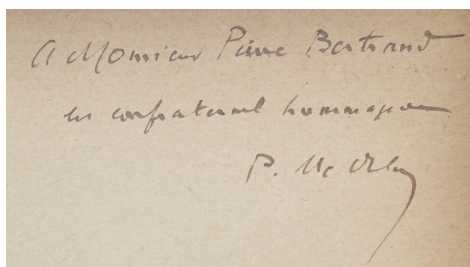 A Monsieur Pierre Bertrand
en confraternel hommage
P. Mc Orlan